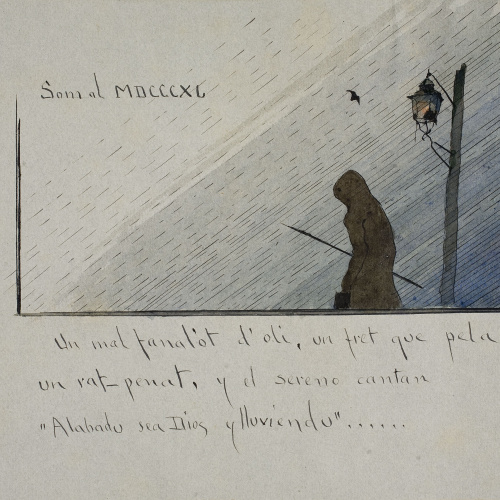 Som al MDCCCXL
Un mal fanalot d'oli, un fret que pela
un rat-penat, y el sereno cantan
"Alabadu sea Dios y lluviendu"......